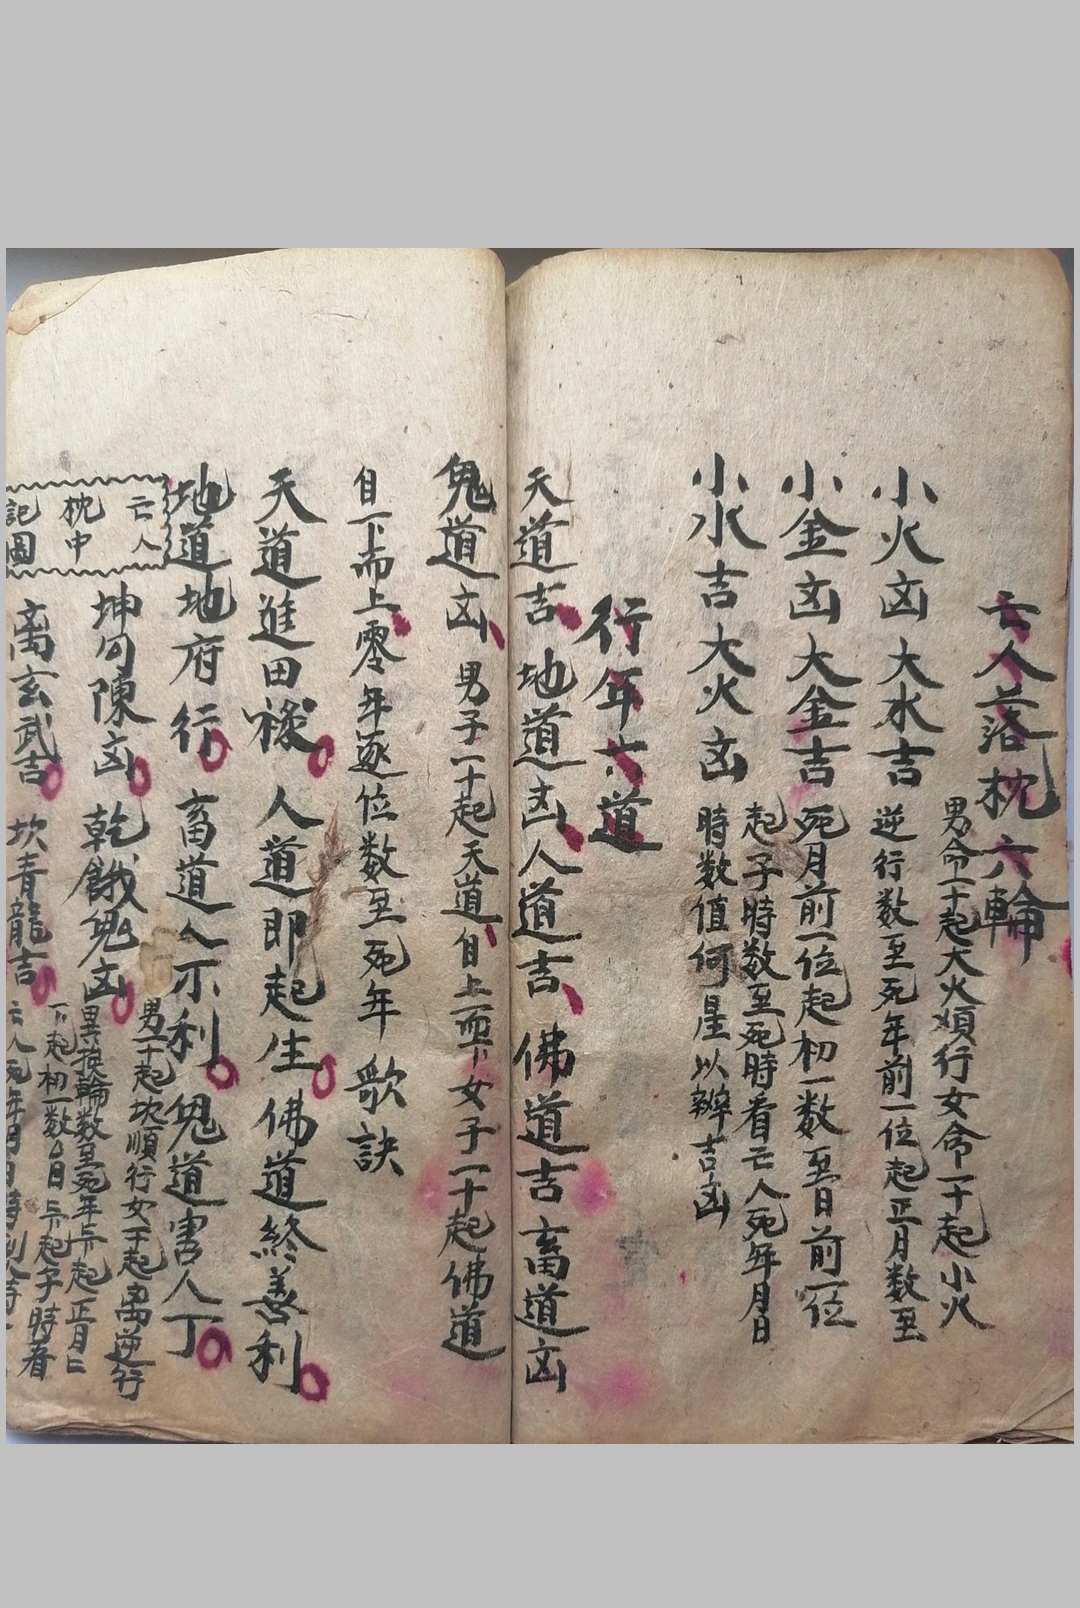 亡人落枕六輪
小火凶大水吉
男命一十起大火順行女命一十起小火
逆行数至死年前一位起正月数至
小金凶大金吉
死月前一位起初一数至日前一位
起子時数至死時看亡人死年月日
小水吉大火凶
時数值何星以辨吉凶
行年六道
天道吉地道凶人道吉佛道吉畜道凶
鬼道凶男子一十起天道自上而下女子一十起佛道
自下而上零年逐位数至死年歌訣
天道進田祿人道即起生佛道終善利
地道地府行畜道人不利鬼道害人丁
亡人
枕中
記圖
坤勾陳凶乾餓鬼凶
男一十起坎順行女一十起离逆行
異换輪数至死年上起正月二
离玄武吉坎青龍吉
下起初一数日上起子時看
亡人死年月日時